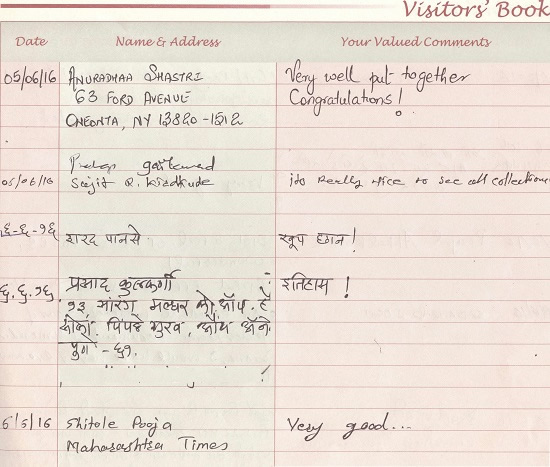 Visitors' Book
Date Name & Address Your Valued Comments
05/06/16 ANURADHAA SHASTRI Very well put together
63 FORD AVENUE Congratulations!
ONEONTA, NY 13820-1512
05/06/16 Sujit
its Really nice to see all collections
६-६-१६ शरद पानसे खूप छान!
६.६.१६ प्रसाद कुलकर्णी इतिहास !
१३, सारंग
पुणे - ६१.
6/6/16 Shitole Pooja Very good...
Maharashtra Times